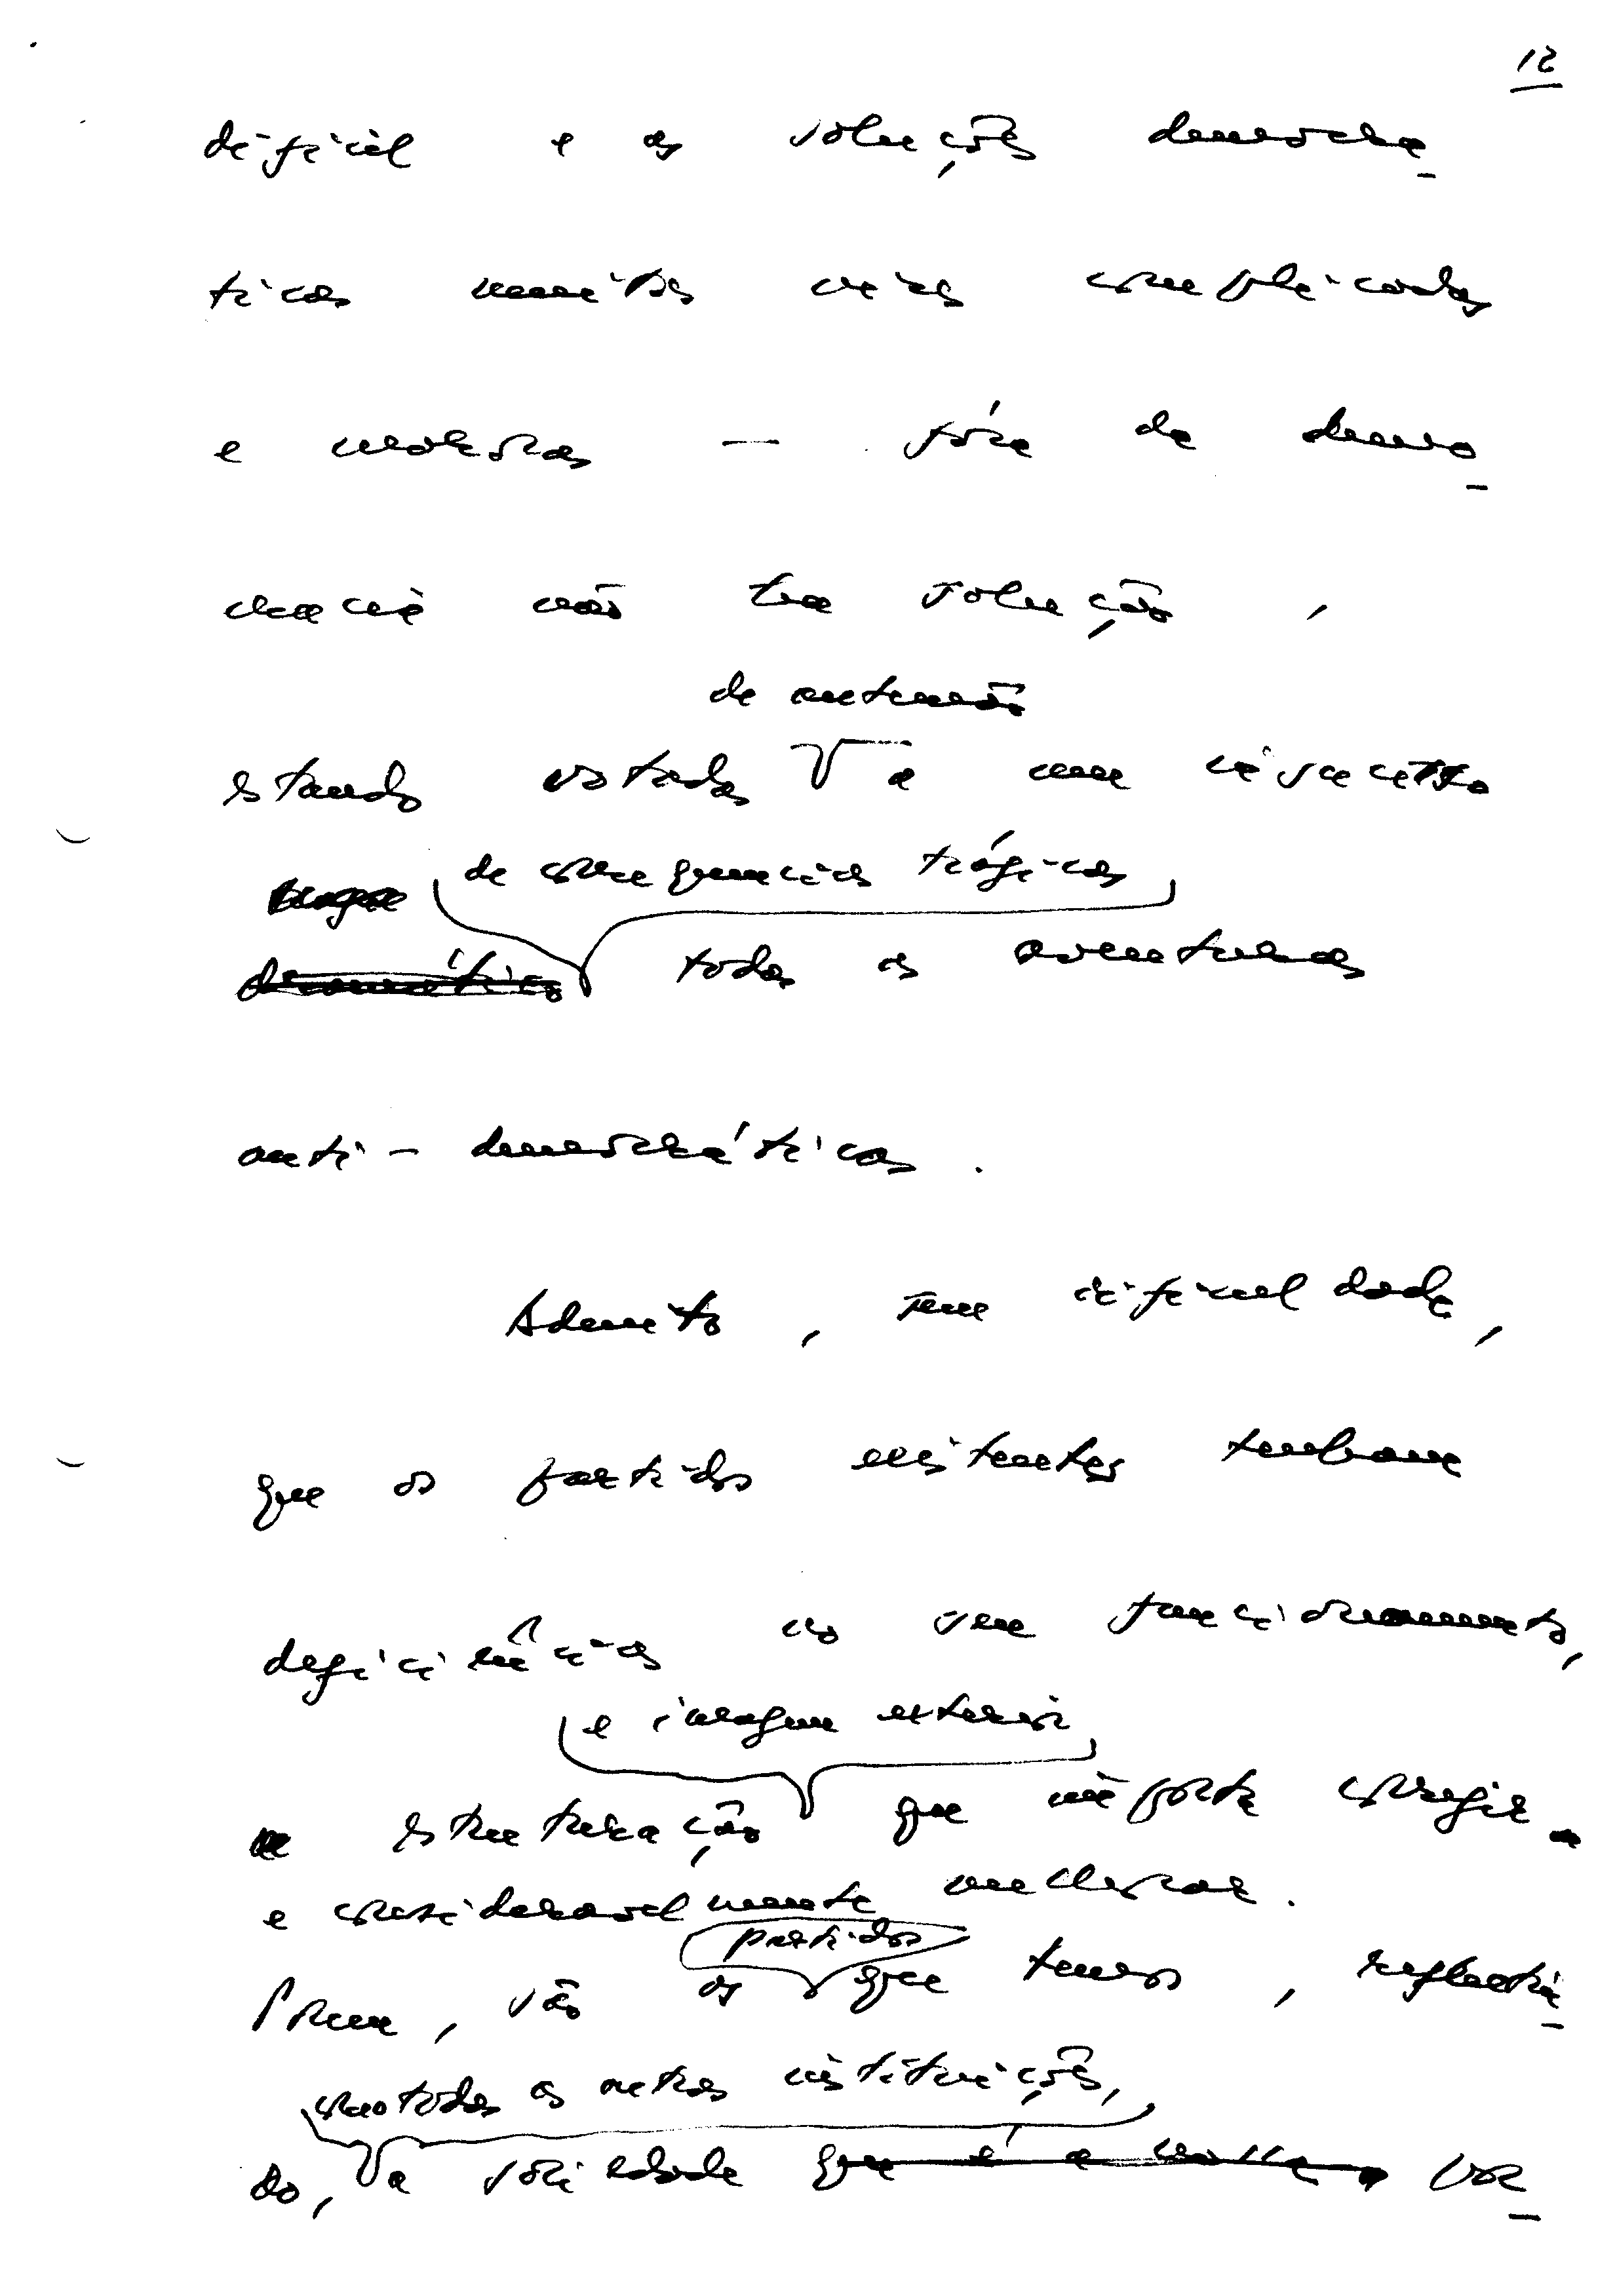 12
difícil e as soluções democrá-
ticas muitas vezes complicadas
e morosas — fora da demo-
cracia não há solução,
de antemão
estando votadas a um insucesso
de consequências trágicas
dramático todas as aventuras
anti-democráticas.
Admito, sem dificuldade,
que os partidos existentes tenham
deficiências no seu funcionamento,
e imagem exterior
estruturação que importa corrigir
e consideravelmente melhorar.
Porém, são os que temos, reflectin-
partidos
como todas as outras instituições,
do, a sociedade que é a nossa